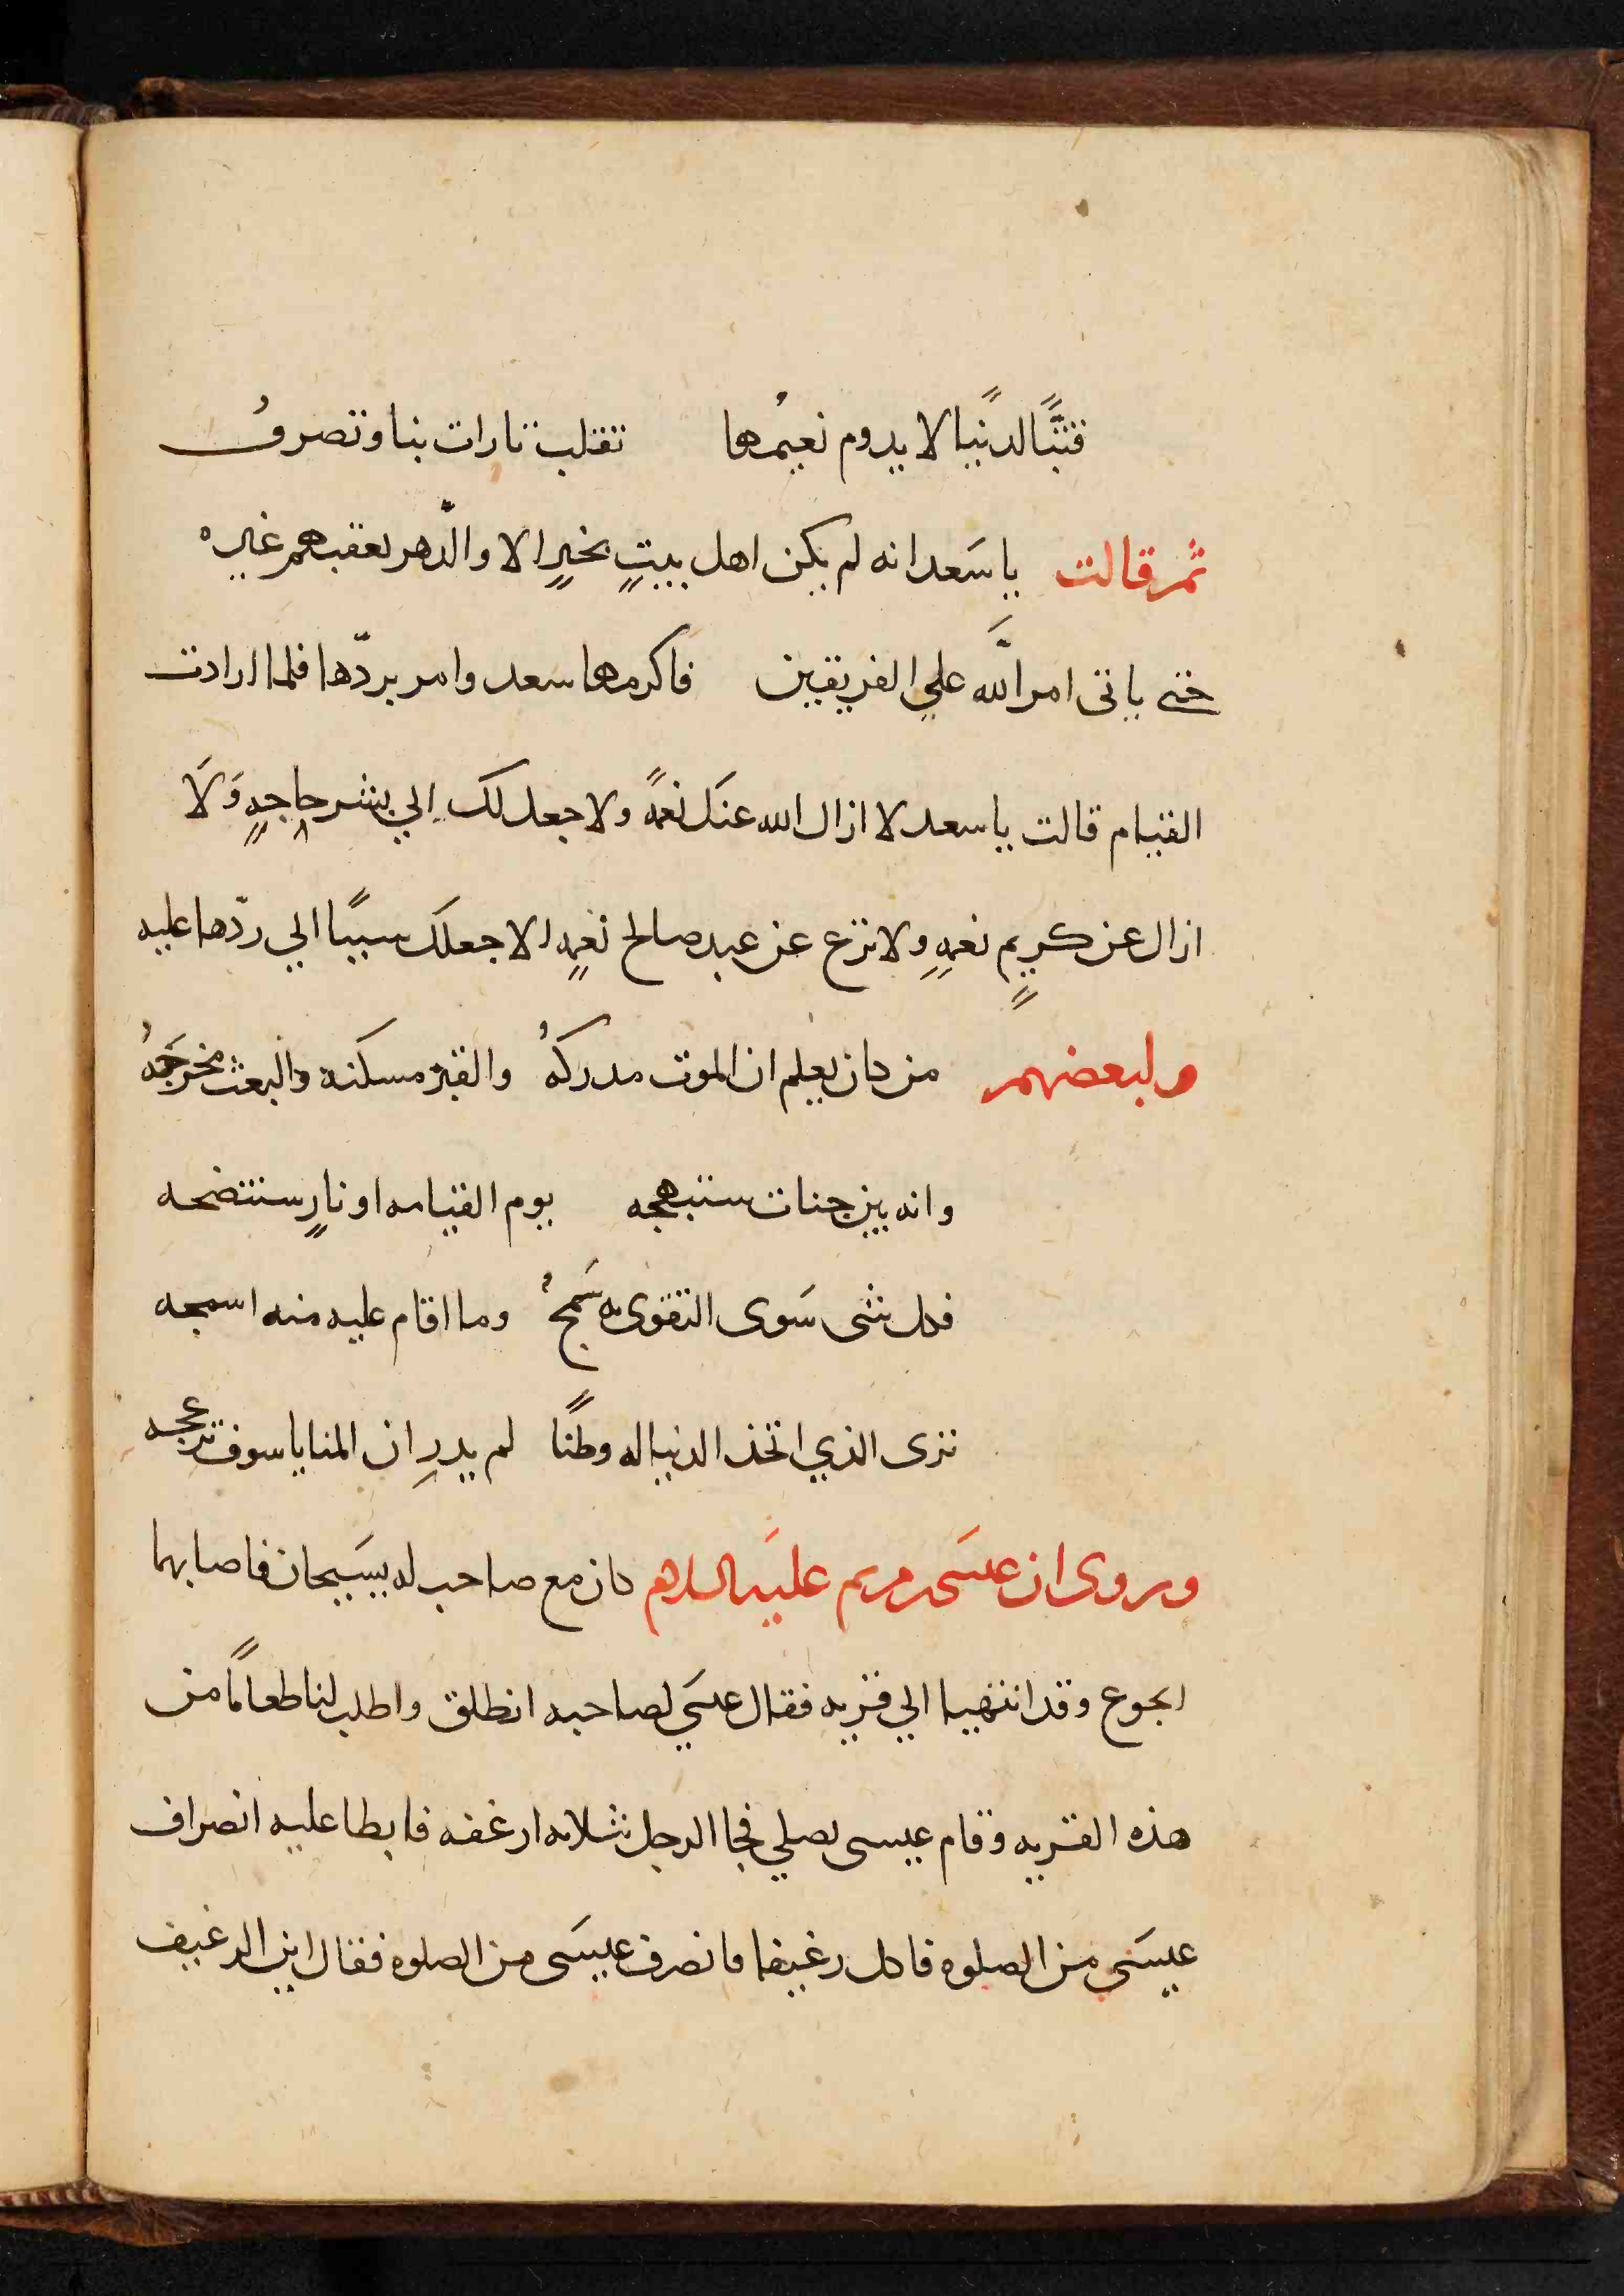 فتبًّا لدنيًا لا يدوم نعيمُها تقلب تارات بنا وتصرفُ
ثم قالت يا سَعد انه لم يكن اهل بيتٍ بخيرٍ الا والدّهر يعقبهم غيره
حتى ياتى امر الله علي الفريقين فاكرمها سعد وامر بردّها فلما ارادت
القيام قالت يا سعد لا ازال الله عنكَ نعمةً ولا جعل لك الي بشر حاجةٍ وَلَا
ازال عن كريمٍ نعمةٍ ولا نزع عن عبد صالح نعمةٍ الا جعلكَ سببًا الي ردّها عليه
ولبعضهم من كان يعلم ان الموت مدركهُ والقبر مسكنه والبعث مخرجَهُ
وانه بين جنات ستبهجه يوم القيامه او نارٍ ستنضجه
فكل شى سَوى التقوى به سَمجُ وما اقام عليه منه اسمجه
ترى الذي اتخذ الدنيا له وطنًا لم يدرِ ان المنايا سوف تزعجه
وروى ان عيسَى مريم عليَه السلام كان مع صاحب له يسَيحان فاصابهما
الجوع وقد انتهيا الي قريه فقال عيسَي لصاحبه انطلق واطلب لنا طعامًا من
هذه القريه وقام عيسى يصلي فجا الرجل بثلاثه ارغفه فابطا عليه انصراف
عيسَى من الصلوه فاكل رغيفا فانصرف عيسَى من الصلوه فقال اين الرغيف